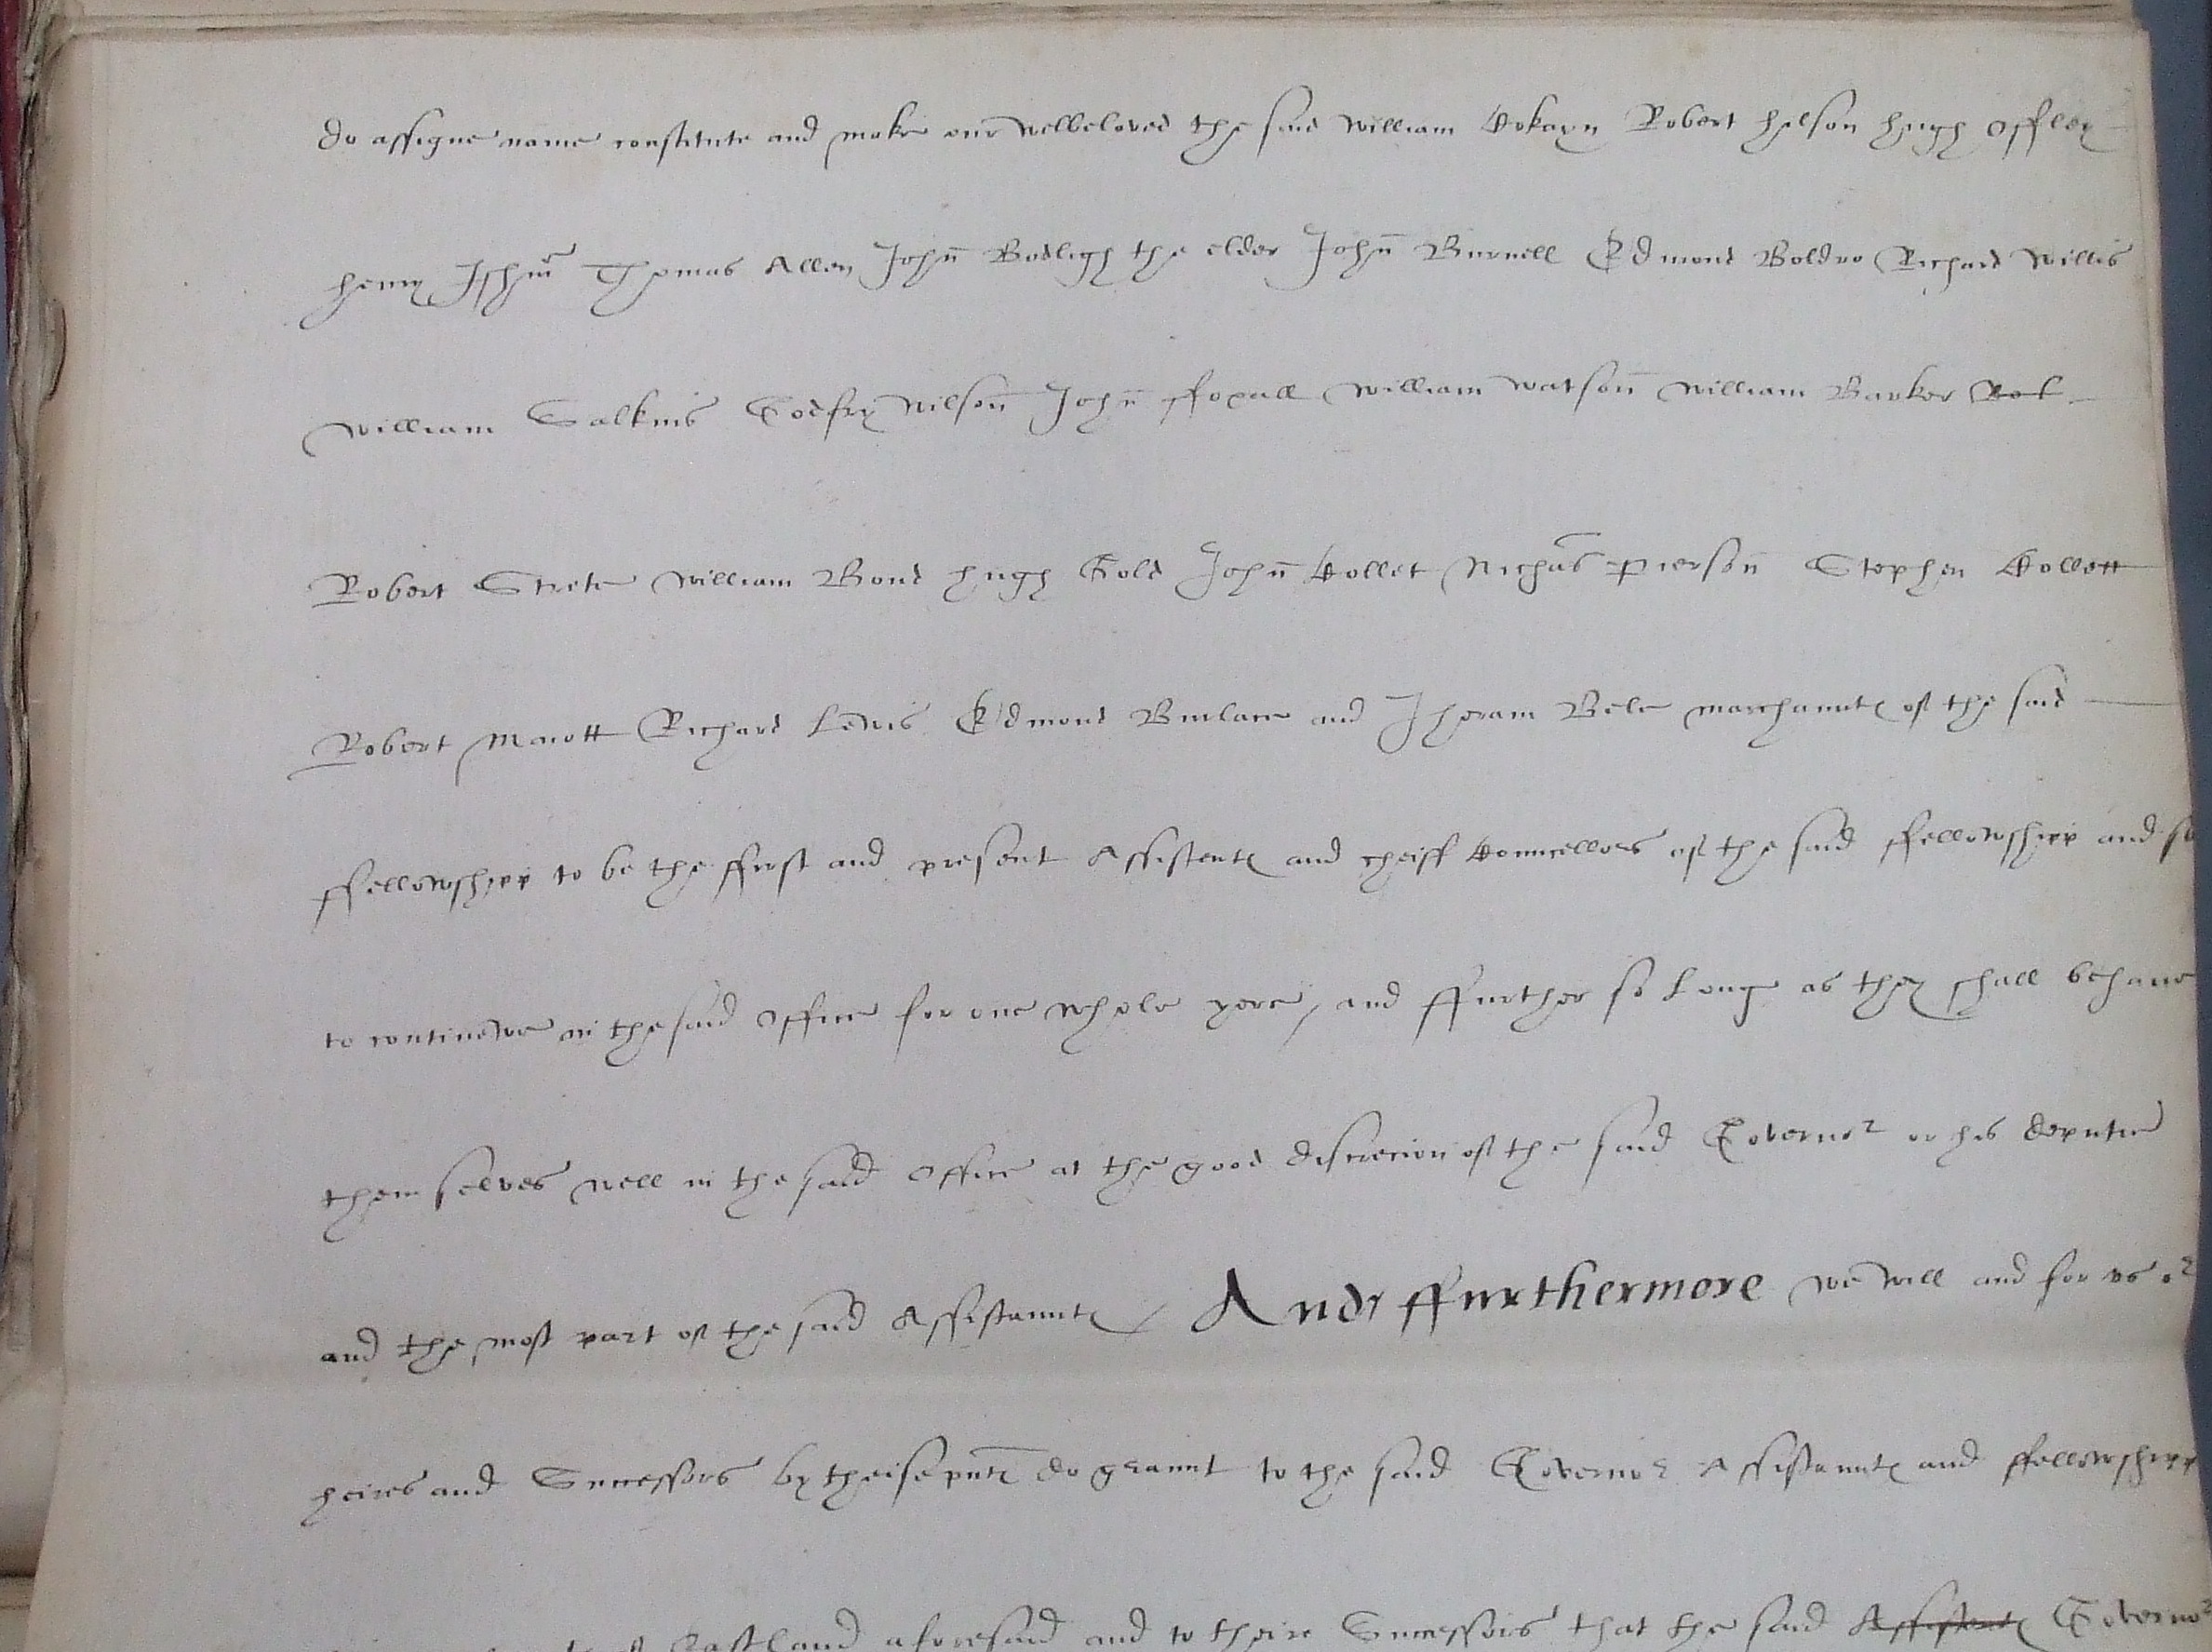 do assigne name constitute and make our welbeloved the said William Cokayn Robert hilson hugh Offley
henry Ishm̃ Thomas Allen John̄ Bodligh the elder John̄ Burnell Edmond Boldro Richard Willis
William Salkins Godfry Wilson̄ John̄ ffoxall William Watson̄ William Barker
Robert Strete William Bond hugh Gold John̄ Collet Nich̃as Pierson̄ Stephen Collett
Robert Mariott Richard Lewis Edmond Burlace and Jheram Bele marchauntes of the said
ffellowshipp to be the ffirst and present Assistentes and cheiff Councellors of the said ffellowshipp and so
to continewe in the said office for one whole yere, and ffurther so Longe as they shall behave
them selves well in the said office at the good discrecion of the said Governor or his deputie
and the most part of the said Assistauntes / And ffurthermore we will and for vs or
heires and Successors by theise pñtes do graunt to the said Governor Assistauntes and ffellowshipp
Eastland aforesaid and to theire Successors that the said Assistentes Governor